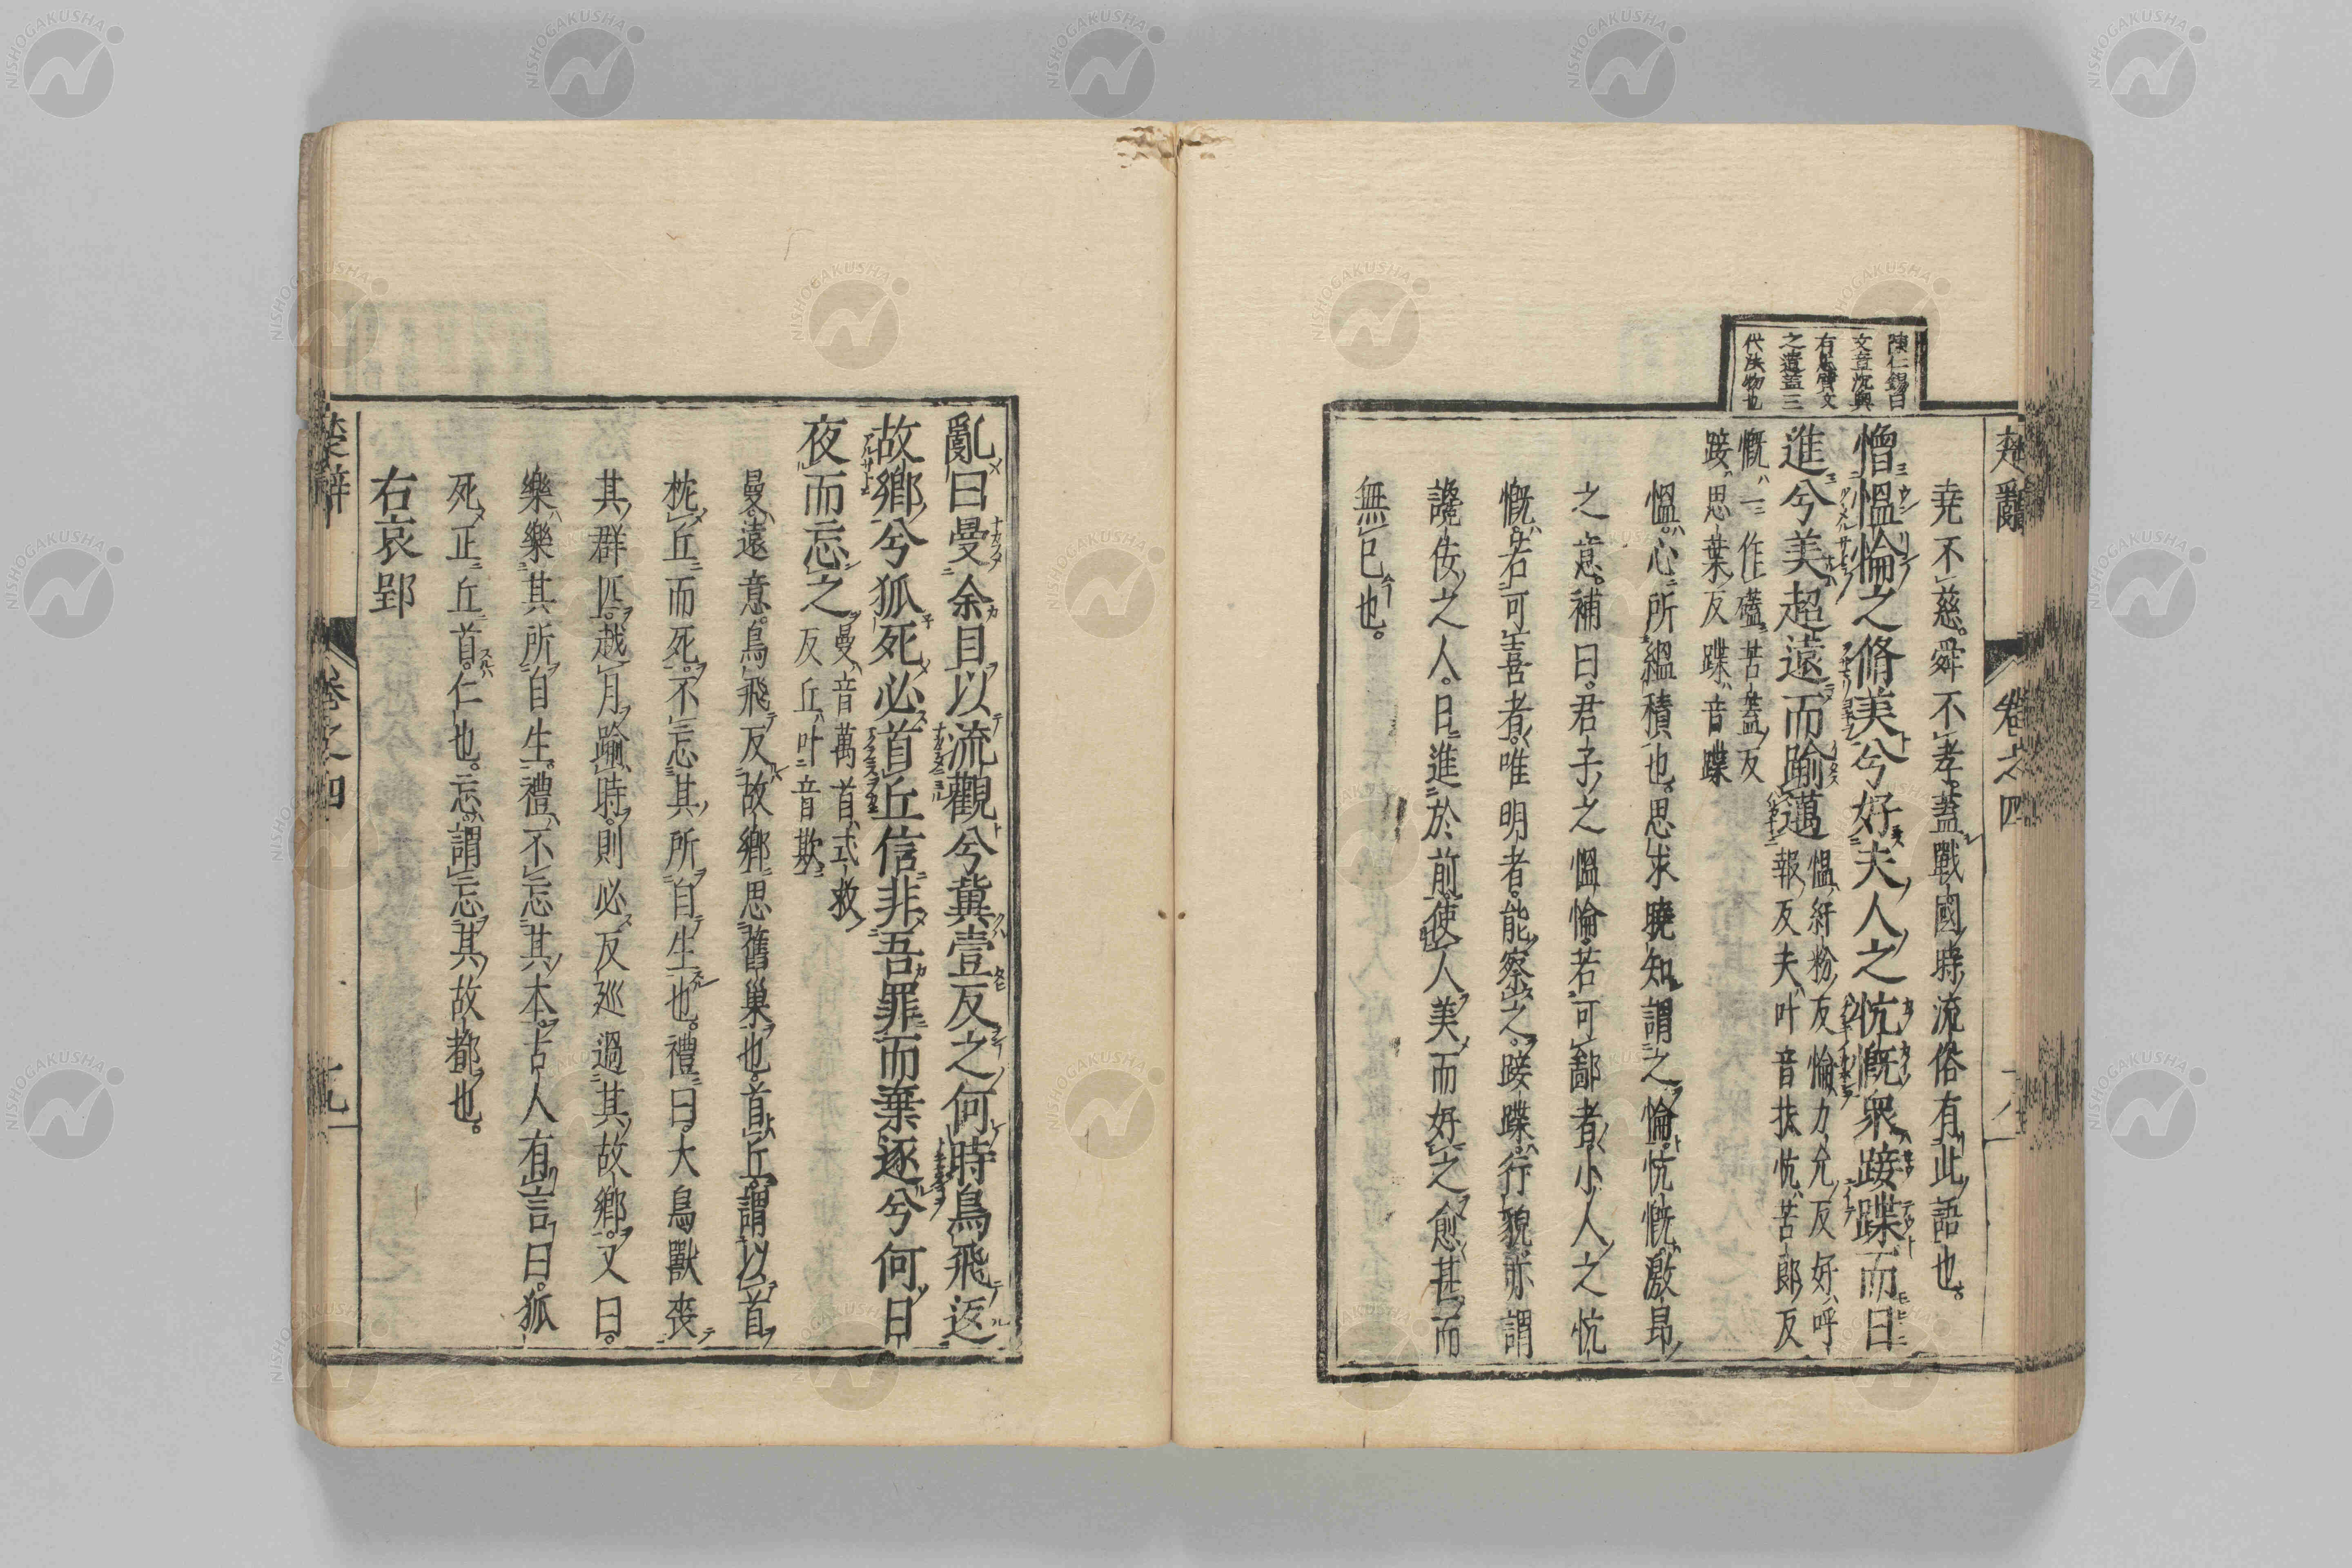 楚辭 卷之四
陳仁錫曰
文章沈與
之遺蓋三
代法物也
堯不慈舜不孝蓋戰國時流俗有此語也
憎慍惀之脩美兮好夫人之忼慨衆踥蹀而日
進兮美超遠而踰邁
慍紆粉反惀力允反好呼
報反夫叶音扶忼苦郎反
慨一作礚苦蓋反
踥思葉反蹀音蝶
慍心所縕積也思求曉知謂之惀忼慨激昂
之意補曰君子之慍惀若可鄙者小人之忼
慨若可喜者唯明者能察之踥蹀行貌亦謂
讒佞之人日進於前使人美而好之愈甚而
無已也
亂曰曼余目以流觀兮冀壹反之何時鳥飛返
故鄉兮狐死必首丘信非吾罪而棄逐兮何日
夜而忘之
曼音萬首式救
反丘叶音欺
曼遠意鳥飛反故鄉思舊巢也首丘謂以首
枕丘而死不忘其所自生也禮曰大鳥獸喪
其群匹越月踰時則必反廵過其故鄉又曰
樂樂其所自生禮不忘其本古人有言曰狐
死正丘首仁也忘謂忘其故都也
右哀郢
楚辭 卷之四